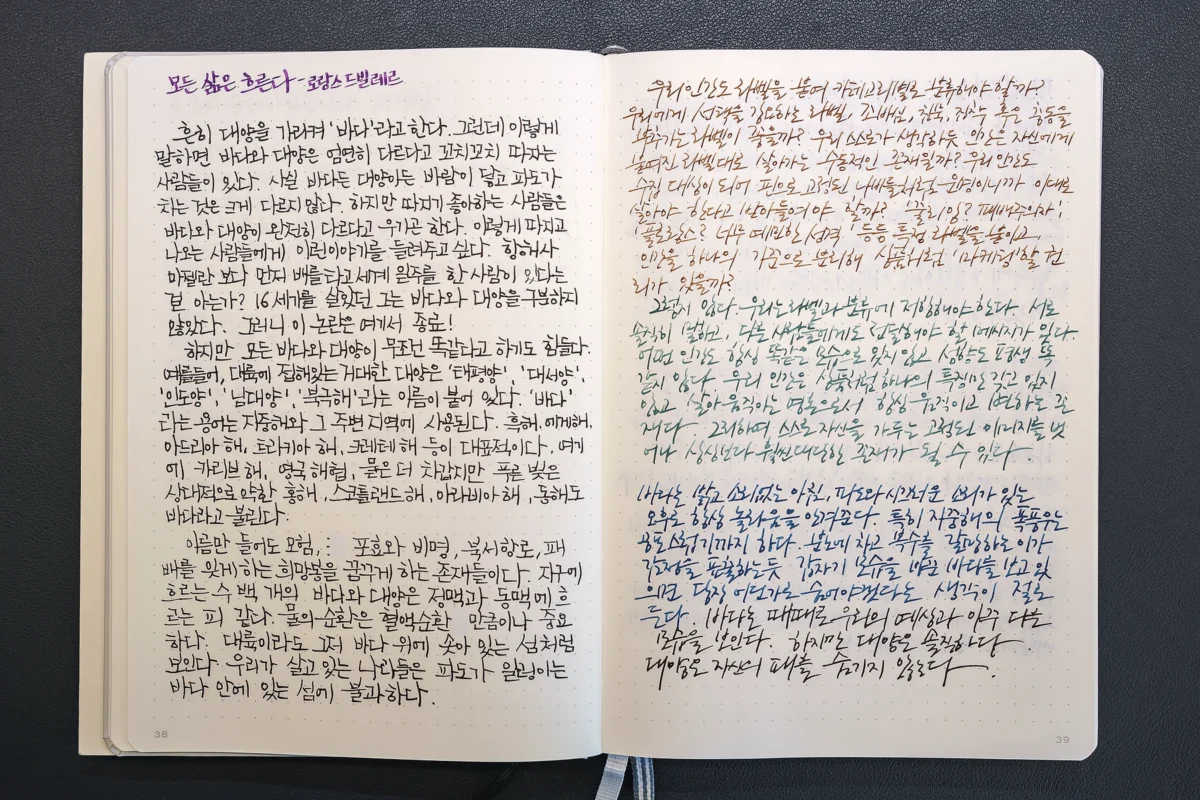 모든 삶은 흐른다 - 로랑스 드빌레르
흔히 대양을 가리켜 '바다'라고 한다. 그런데 이렇게
말하면 바다와 대양은 엄연히 다르다고 꼬치꼬치 따지는
사람들이 있다. 사실 바다든 대양이든 바람이 닿고 파도가
치는 것은 크게 다르지 않다. 하지만 따지기 좋아하는 사람들은
바다와 대양이 완전히 다르다고 우기곤 한다. 이렇게 따지고
나오는 사람들에게 이런이야기를 들려주고 싶다. 항해사
마젤란 보다 먼저 배를 타고 세계 일주를 한 사람이 있다는
걸 아는가? 16세기를 살았던 그는 바다와 대양을 구분하지
않았다. 그러니 이 논란은 여기서 종료!
하지만 모든 바다와 대양이 무조건 똑같다고 하기도 힘들다.
예를들어, 대륙에 접해있는 거대한 대양은 '태평양', '대서양',
'인도양', '남대양', '북극해'라는 이름이 붙어 있다. '바다'
라는 용어는 지중해와 그 주변 지역에 사용된다. 흑해, 에게해,
아드리아 해, 트라키아 해, 크레테 해 등이 대표적이다. 여기
에 카리브 해, 영국 해협, 물은 더 차갑지만 푸른 빛은
상대적으로 약한 홍해, 스코틀랜드 해, 아라비아 해, 동해도
바다라고 불린다.
이름만 들어도 모험, : 포효와 비명, 북서항로, 패
배를 잊게 하는 희망봉을 꿈꾸게 하는 존재들이다. 지구에
흐르는 수 백 개의 바다와 대양은 정맥과 동맥에 흐
르는 피 같다. 물의 순환은 혈액순환 만큼이나 중요
하다. 대륙이라도 그저 바다 위에 솟아 있는 섬처럼
보인다. 우리가 살고 있는 나라들은 파도가 일렁이는
바다 안에 있는 섬에 불과하다.
38
우리 인간도 라벨을 붙여 카테고리별로 분류해야 할까?
우리에게 선택을 강요하는 라벨, 조바심, 침묵, 점수 혹은 충동을
부추기는 라벨이 좋을까? 우리 스스로가 생각하듯 인간은 자신에게
붙여진 라벨대로 살아가는 수동적인 존재일까? 우리 인간도
수집 대상이 되어 핀으로 고정된 나비들처럼 운명이니까 이대로
살아야 한다고 받아들여야 할까? '꼴리잉? 패배주의자',
'플로랑스? 너무 예민한 성격' 등등 특정 라벨을 붙이고
인간을 하나의 기준으로 분리해 상품처럼 '마케팅'할 권
리가 있을까?
그렇지 않다. 우리는 라벨과 분류에 저항해야 한다. 서로
솔직히 말하고, 다른 사람들에게도 전달해야 할 메시지가 있다.
어떤 인간도 항상 똑같은 모습으로 있지 않고 성향도 평생 똑
같지 않다. 우리 인간은 상품처럼 하나의 특징만 갖고 있지
않고 살아 움직이는 영혼으로서 항상 움직이고 변하는 존
재다. 그리하여 스스로 자신을 가두는 고정된 이미지를 벗
어나 상상보다 훨씬 대단한 존재가 될 수 있다.
바다는 밝고 소리없는 아침, 파도와 시끄러운 소리가 있는
오후로 항상 놀라움을 안겨준다. 특히 지중해의 폭풍우는
공포스럽기까지 하다. 분노에 차고 복수를 갈망하는 이가
감정을 표출하는 듯 갑자기 모습을 바꾼 바다를 보고 있
으면 당장 어딘가로 숨어야겠다는 생각이 절로
든다. 바다는 때때로 우리의 예상과 아주 다른
모습을 보인다. 하지만 대양은 솔직하다.
대양은 자신의 패를 숨기지 않는다.
39